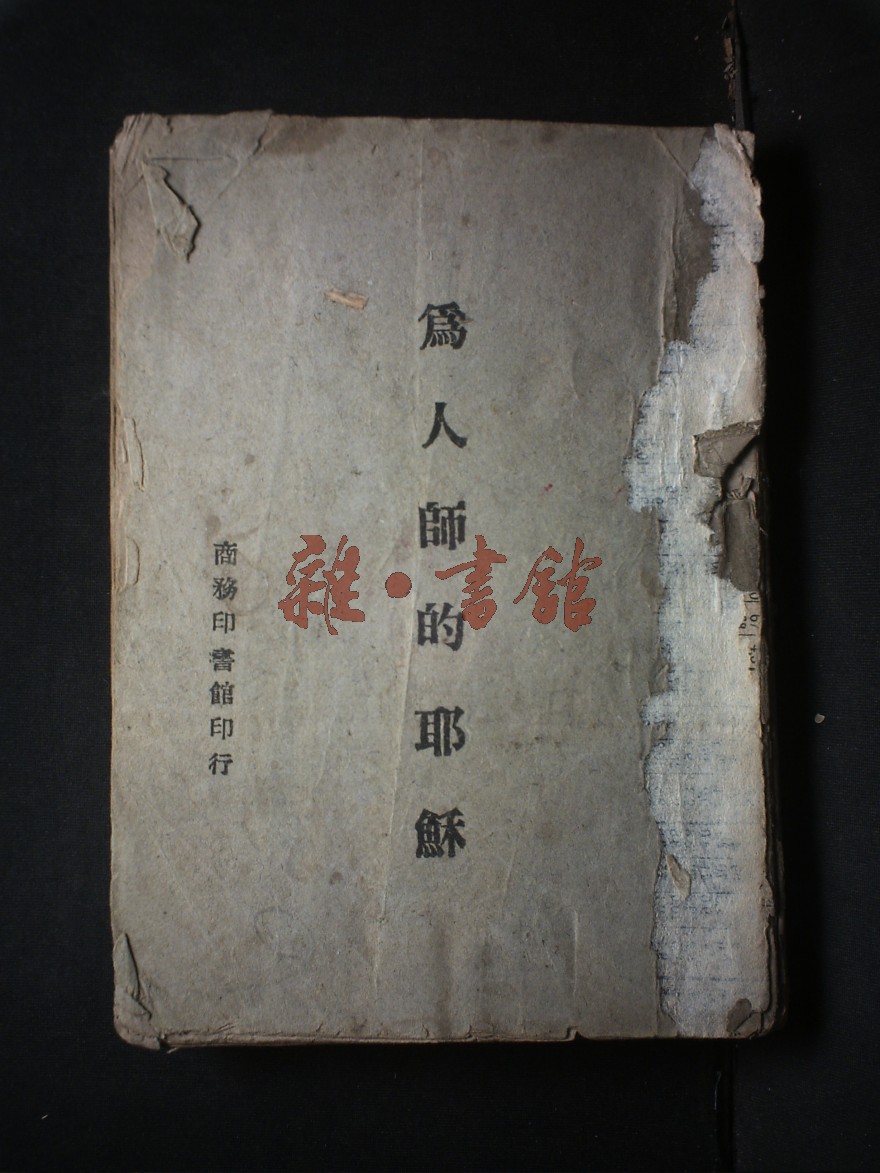 爲人師的耶穌
商務印書館印行
雜·書館